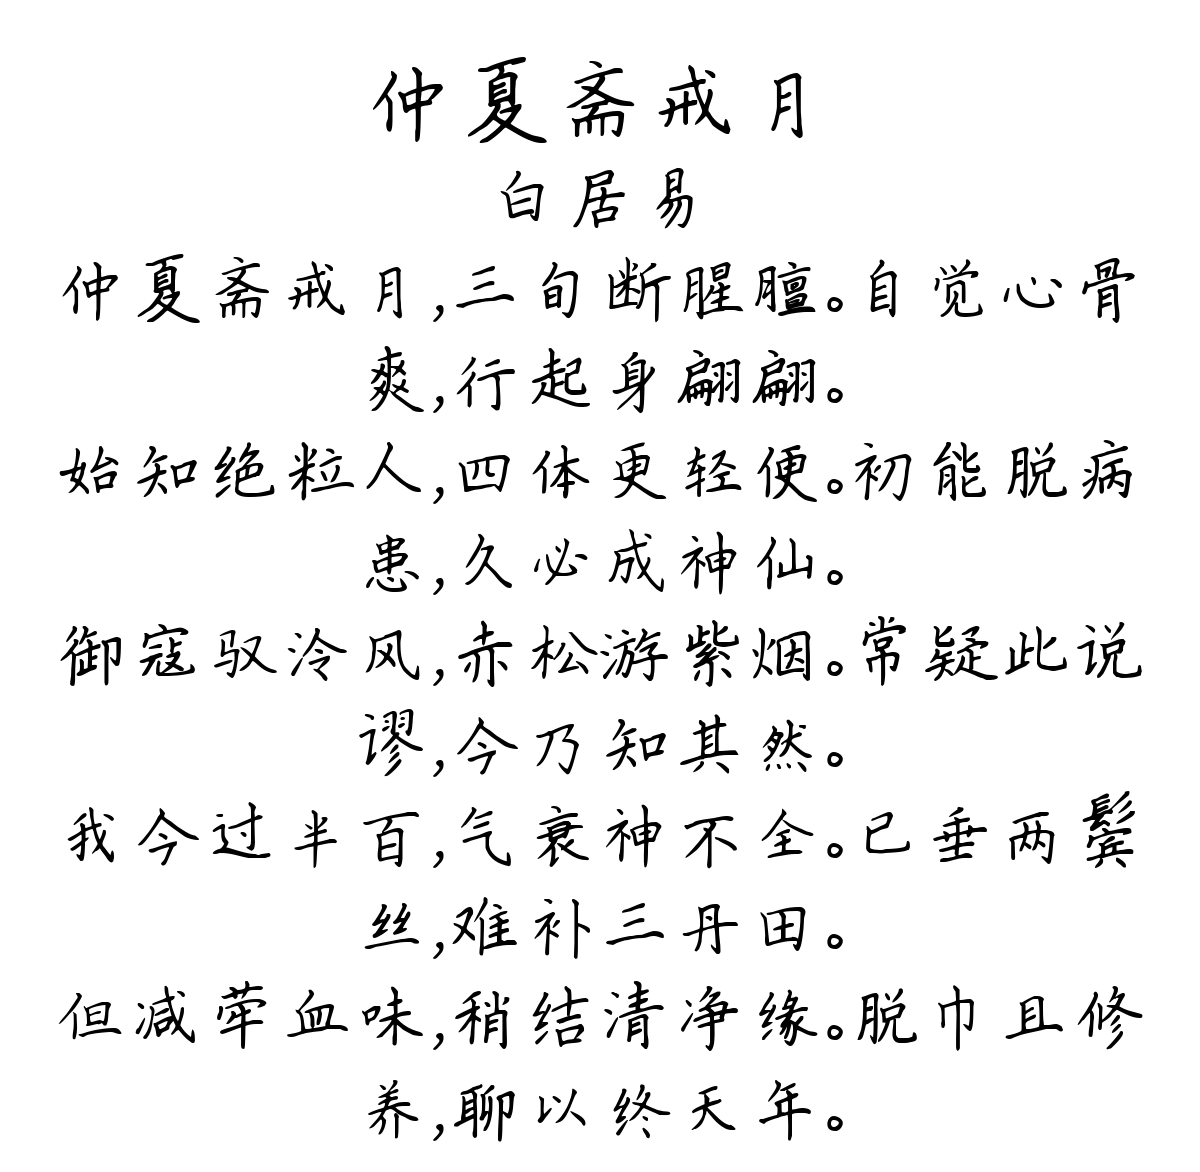 仲夏斋戒月
白居易
仲夏斋戒月,三旬断腥膻。自觉心骨
爽,行起身翩翩。
始知绝粒人,四体更轻便。初能脱病
患,久必成神仙。
御寇驭泠风,赤松游紫烟。常疑此说
谬,今乃知其然。
我今过半百,气衰神不全。已垂两鬓
丝,难补三丹田。
但减荤血味,稍结清净缘。脱巾且修
养,聊以终天年。